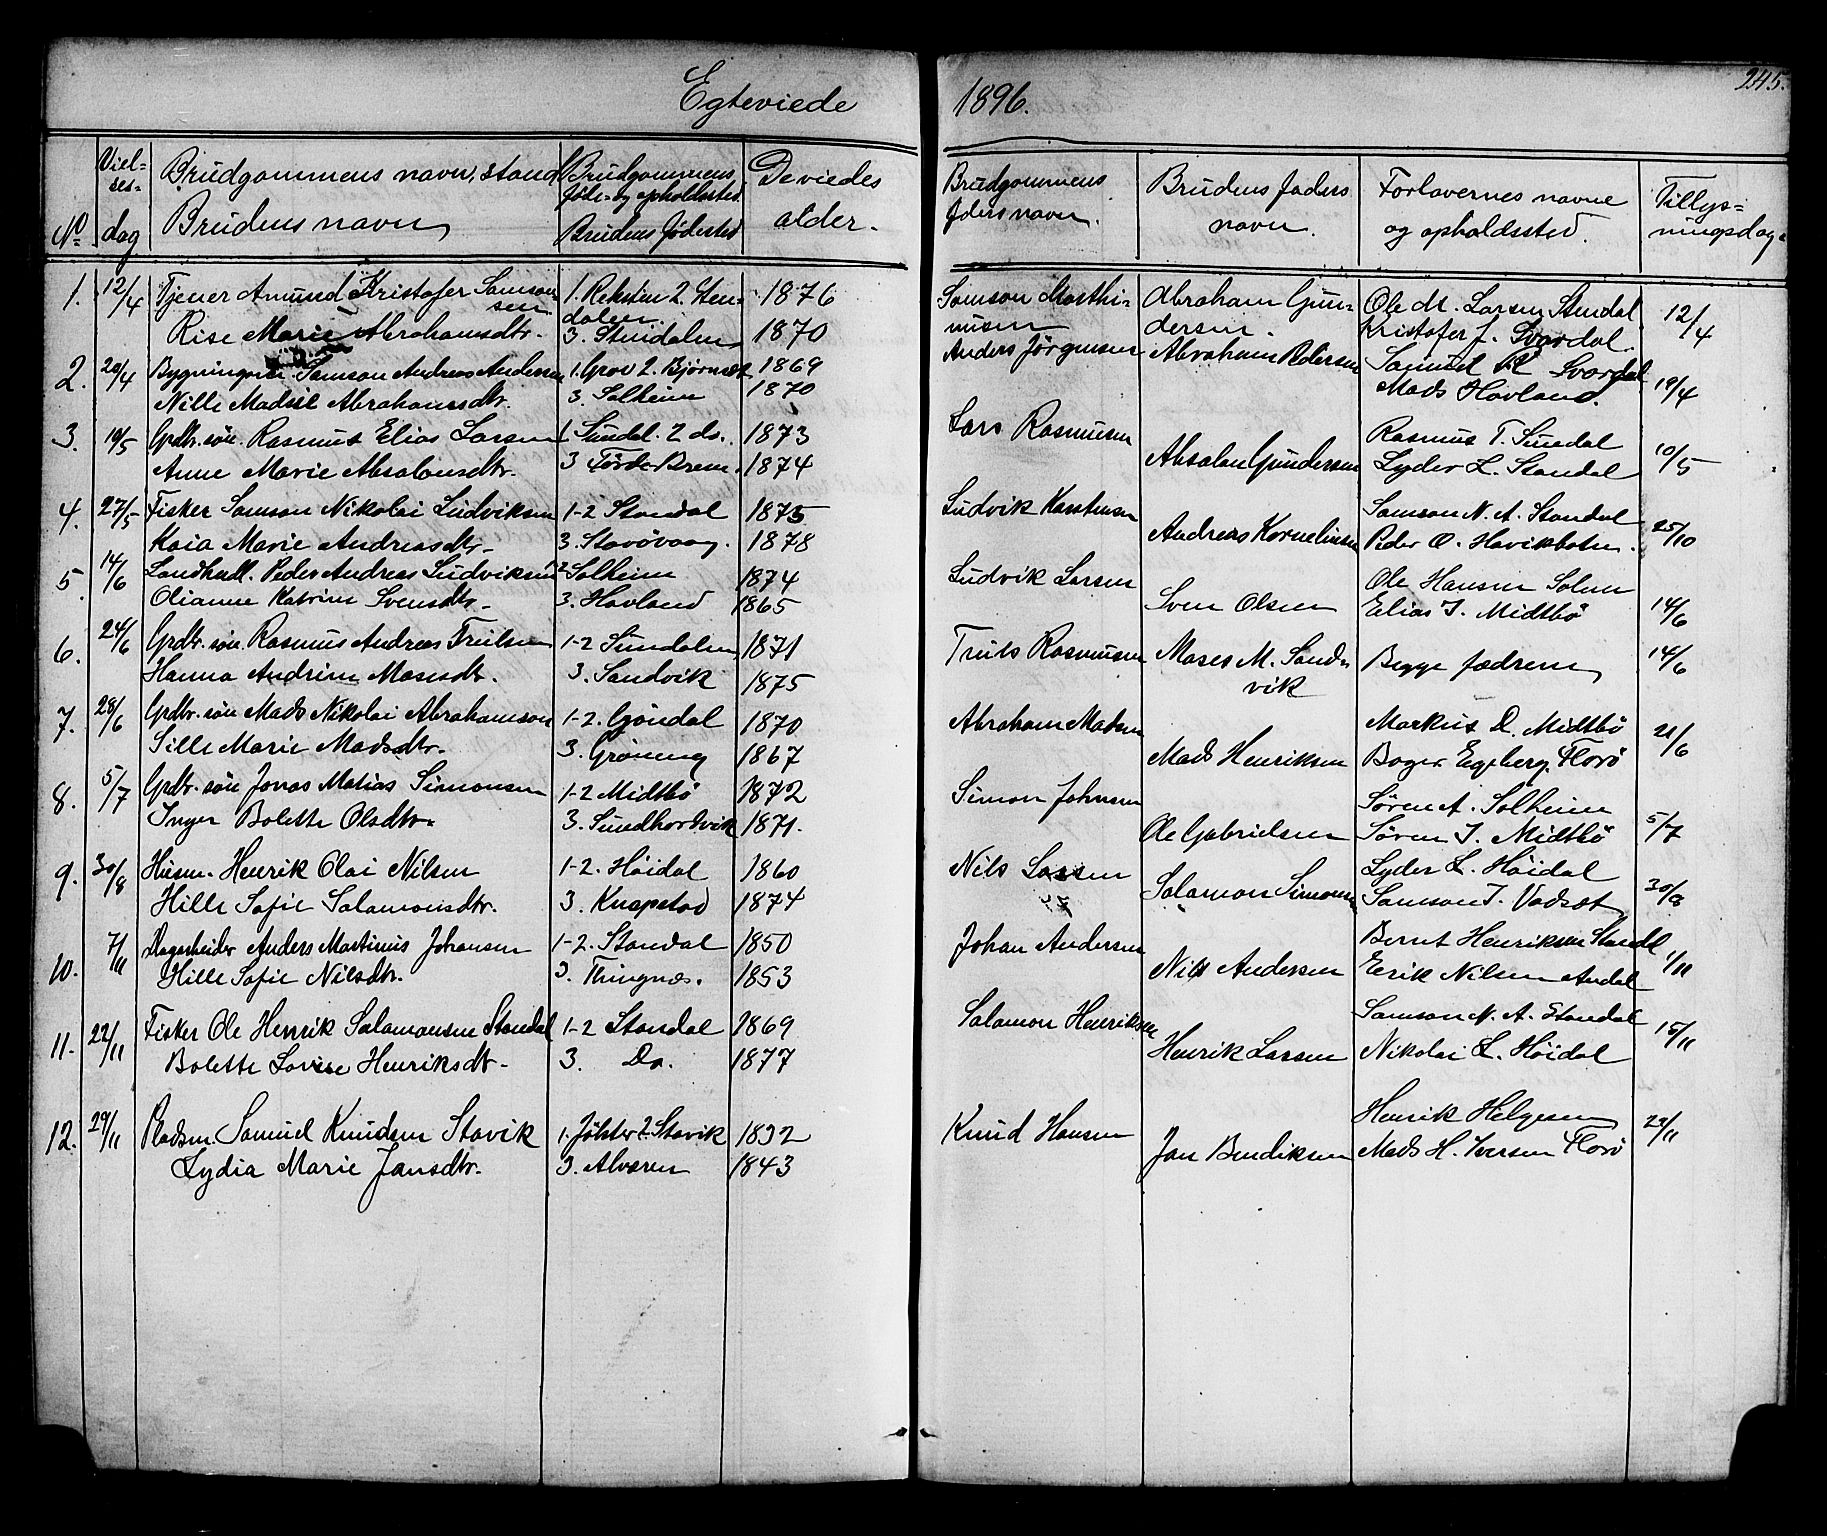 Egteviede 1896.
245.
No
Viel=
ses-
dag
Brudgommens navn, stand
Brudens navn
Brudgommens
føde- og opholdssted
Brudens fødested
De viedes
alder.
Brudgommens
faders navn.
Brudens faders
navn.
Forlovernes navne
og opholdssted.
Tillys=
ningsdag.
1. 12/4 Tjener Amund Kristofer Samson 1. Rekstin 2. Sten- 1876 Samson Marthi- Abraham Gun- Ole M. Larsen Stendal 12/4
sen dalen nusen dersen. Kristofer J. Svardal.
Rise Marie Abrahamsdtr. 3. Stendalen 1870
2. 20/4 Samson Andreas Andersen 1. Grov 2. Bjørnset 1869 Anders Jørgensen Abraham Pedersen Samuel Svardal 19/4
Nille Madsie Abrahamsdtr. 3. Solheim 1870 Mads Hovland.
3. 10/5 Grdbr. søn. Rasmus Elias Larsen 1 Sundal. 2 do. 1873 Lars Rasmusen Rasmus T. Sundal 10/5
Anne Marie Absalonsdtr. 3 Førde Brem. 1874 Absalon Gundersen Lyder L. Standal
4. 27/5 Fisker Samson Nikolai Ludviksen 1-2 Standal 1875 Ludvik Karstensen Samson N. A. Standal 25/10
Kaia Marie Andreasdtr. 3. Stavøvaag. 1878 Andreas Kornelinsen Peder O. Havikbotn.
5. 14/6 Landhndl. Peder Andreas Ludviksen 1-2 Solheim 1874 Ludvik Larsen Ole Hansen Solem 14/6
Olianne Katrine Svensdtr. 3. Hovland 1865 Sven Olsen Elias I. Midtbö
6. 24/6 Grdbr. søn. Rasmus Andreas Trulsen 1-2 Sundalen 1871 Truls Rasmusen Moses M. Sand- Begge fædrene 14/6
Hanna Andrine Mosesdtr. 3. Sandvik 1875 vik
7. 28/6 Grdbr. søn Mads Nikolai Abrahamson 1-2. Gjöndal 1870 Abraham Madsen Markus D. Midtbö 21/6
Sille Marie Madsdtr. 3. Gröneng 1867 Mads Henriksen Boger Egeberg. Florö
8. 5/7 Grdbr. søn Jonas Matias Simonsen 1-2 Midtbö 1872 Simon Johnsen Sören A. Solheim 5/7
Inger Bolette Olsdtr. 3. Sundhordvik 1871. Ole Gabrielsen Sören I. Midtbö
9. 30/8 Husm. Henrik Olai Nilsen 1-2. Höidal 1860 Nils Larsen Lyder L. Höidal 30/8
Hille Sofie Salamonsdtr. 3. Knapstad 1874 Salamon Simonsen Samson J. Vadset
10. 7/11 Dagarbeider Anders Martinus Johansen 1-2. Standal 1850 Johan Andersen Bernt Henriksen Standal 1/11
Hille Sofie Nilsdtr. 3. Thingnæs. 1853 Nils Andersen Eerik Nilsen Andal
11. 22/11 Fisker Ole Henrik Salamonsen Standal 1-2 Standal 1869 Salamon Henriksen Samson N. A. Standal 15/11
Bolette Lovise Henriksdtr. 3. Do. 1877 Henrik Larsen Nikolai L. Höidal
12. 29/11 Pladsm. Samuel Knudsen Stavik 1. Jölster 2. Stavik 1832 Knud Hansen Henrik Helgesen 29/11
Lydia Marie Jansdtr. 3. Alværen 1843 Jan Bendiksen Mads H. Iversen Florö